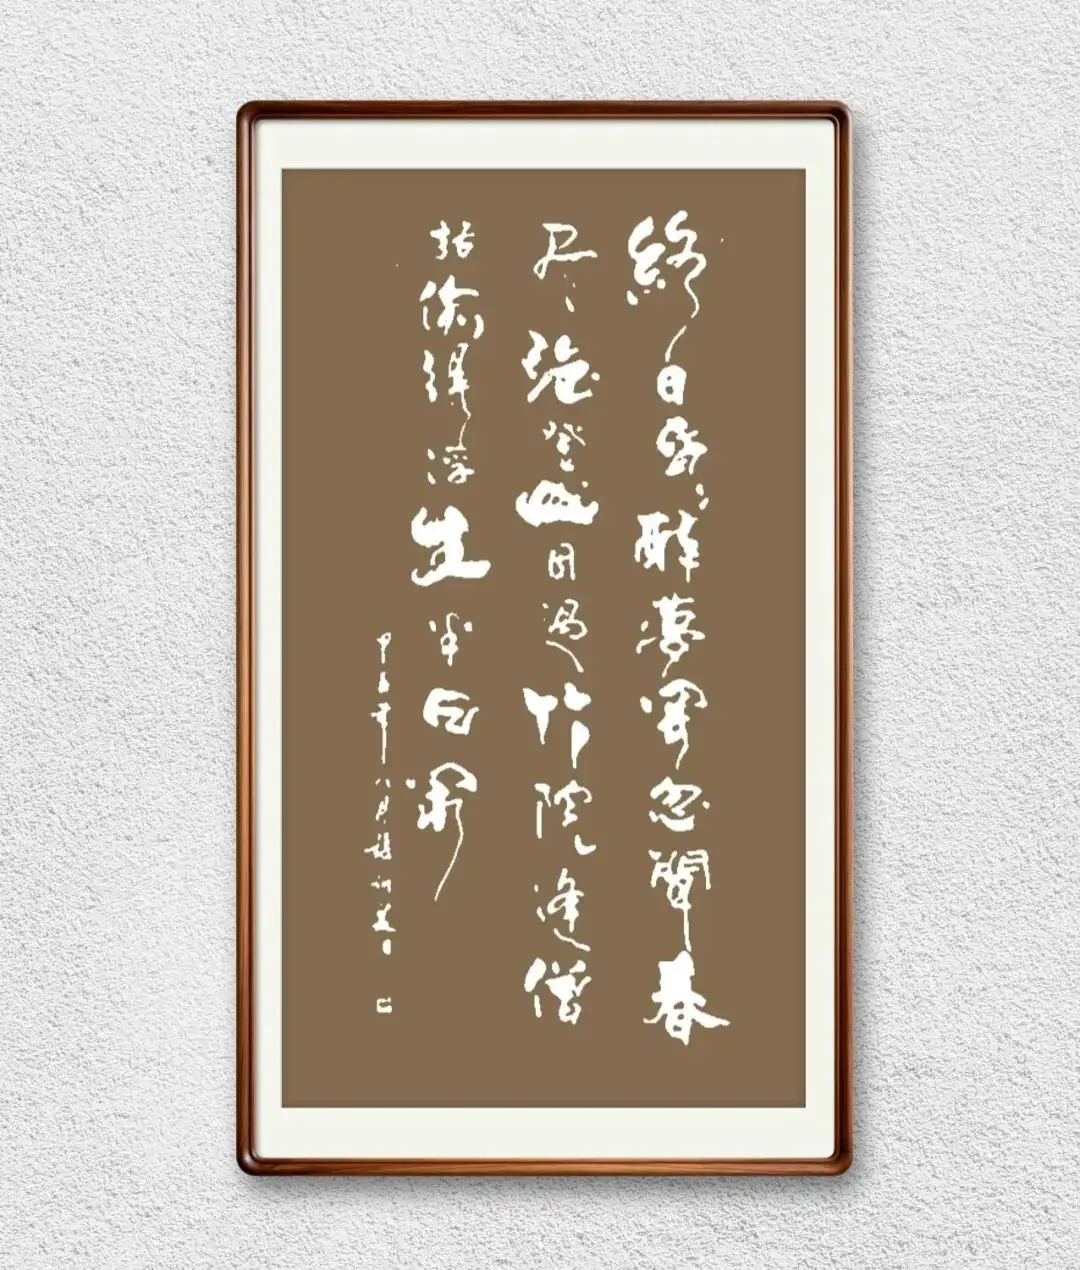 終日昏〻醉夢間忽聞春
尽強登山因過竹院逢僧
話偷得浮生半日閑
甲年八月